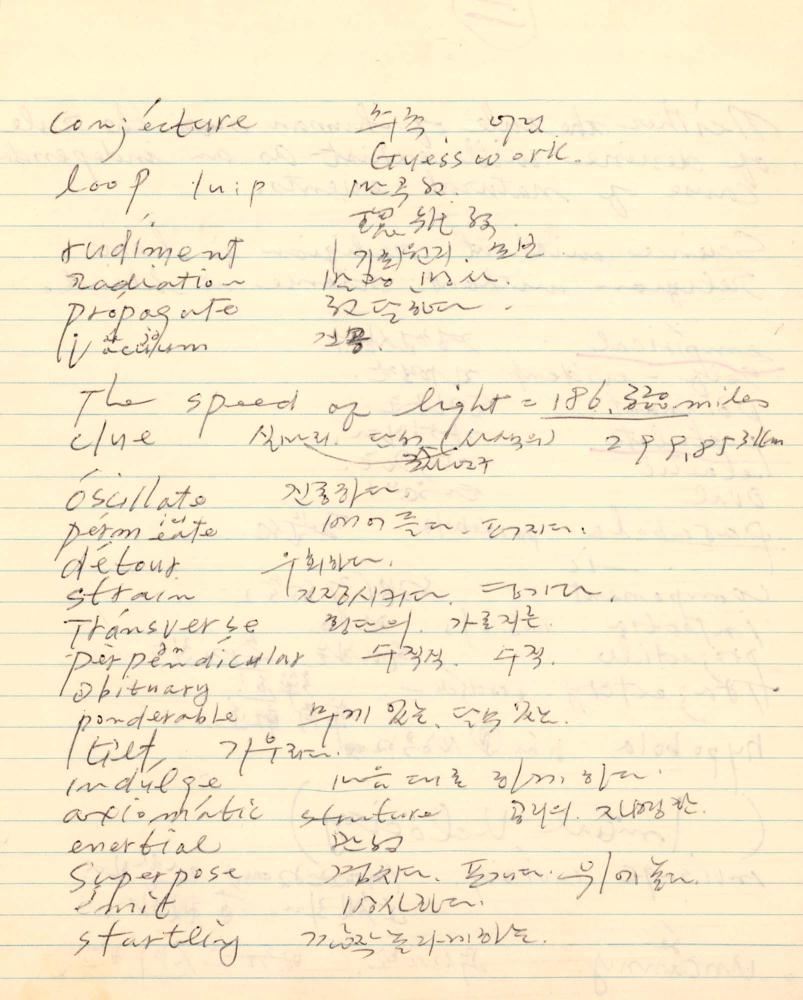 conjécture 추측 어림
Guess work.
loop lu:p
rúdiment 기초원리.
Radiation 발광 방사.
própagate 전달하다.
vacuum 진공.
The speed of light = 186, miles
clue 실마리. 단서 299,853km
óscillate 진동하다.
pérmeate 배어들다. 퍼지다.
détour 우회하다.
strain 긴장시키다. 당기다.
Tránsverse 횡단의. 가로지른.
perpendícular 수직적. 수직.
obituary
ponderable 무게 있는,
tilt, 기우리다.
indúlge 마음대로 하게 하다.
axiomátic struture 공리의. 자명한.
enertial 관성
Superpose 겹치다. 포개다. 위에 놓다.
émit 방사하다.
startling 깜짝 놀라게하는.